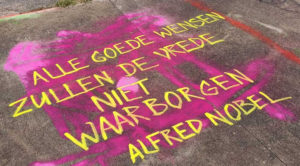 ALLE GOEDE WENSEN
ZULLEN DE VREDE
NIET
WAARBORGEN
ALFRED NOBEL